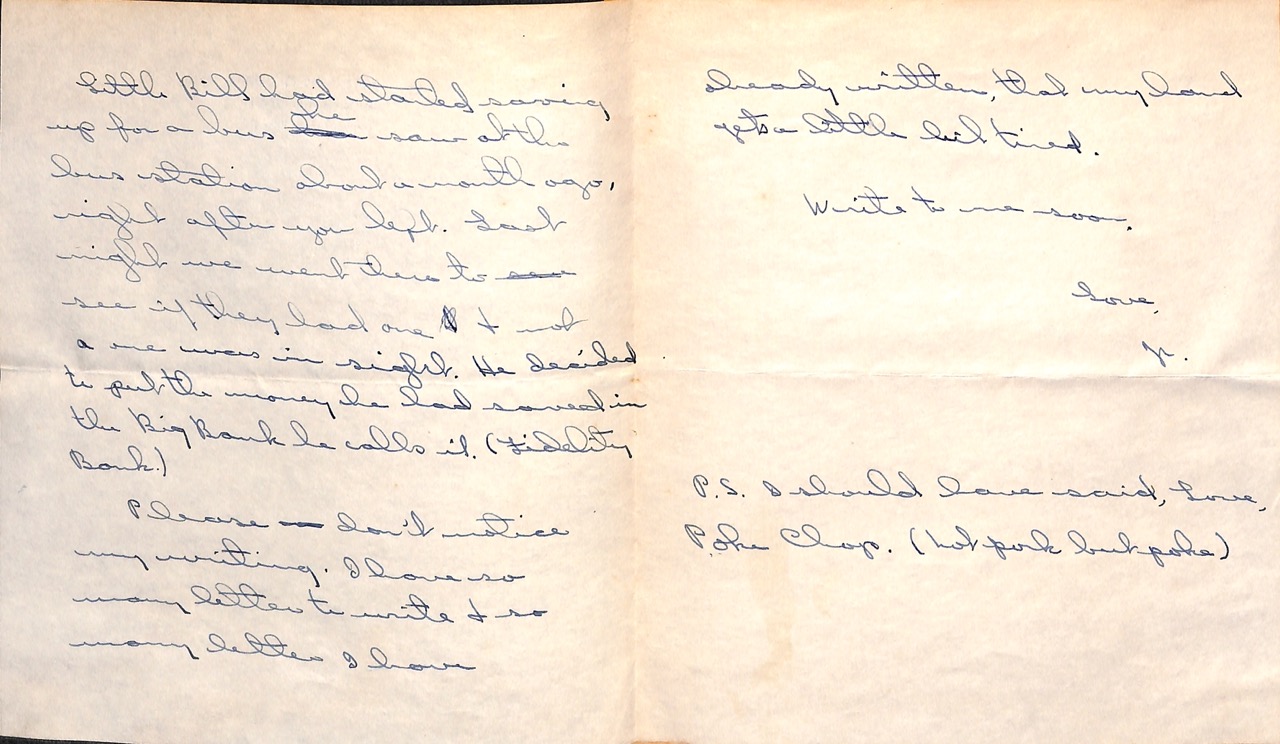 Little Bill had started saving
up for a bus he saw at the
bus station about a month ago,
right after you left. Last
night we went there to see
see if they had one & not
a one was in sight. He decided
to put the money he had saved in
the Big Bank he calls it. (Fidelity
Bank.)
Please don't notice
my writing. I have so
many letters to write & so
many letters I have
already written, that my hand
gets a little bit tired.
Write to me soon.
Love,
Jr.
P.S. I should have said, Love,
Poke Chop. (Not pork but poke)